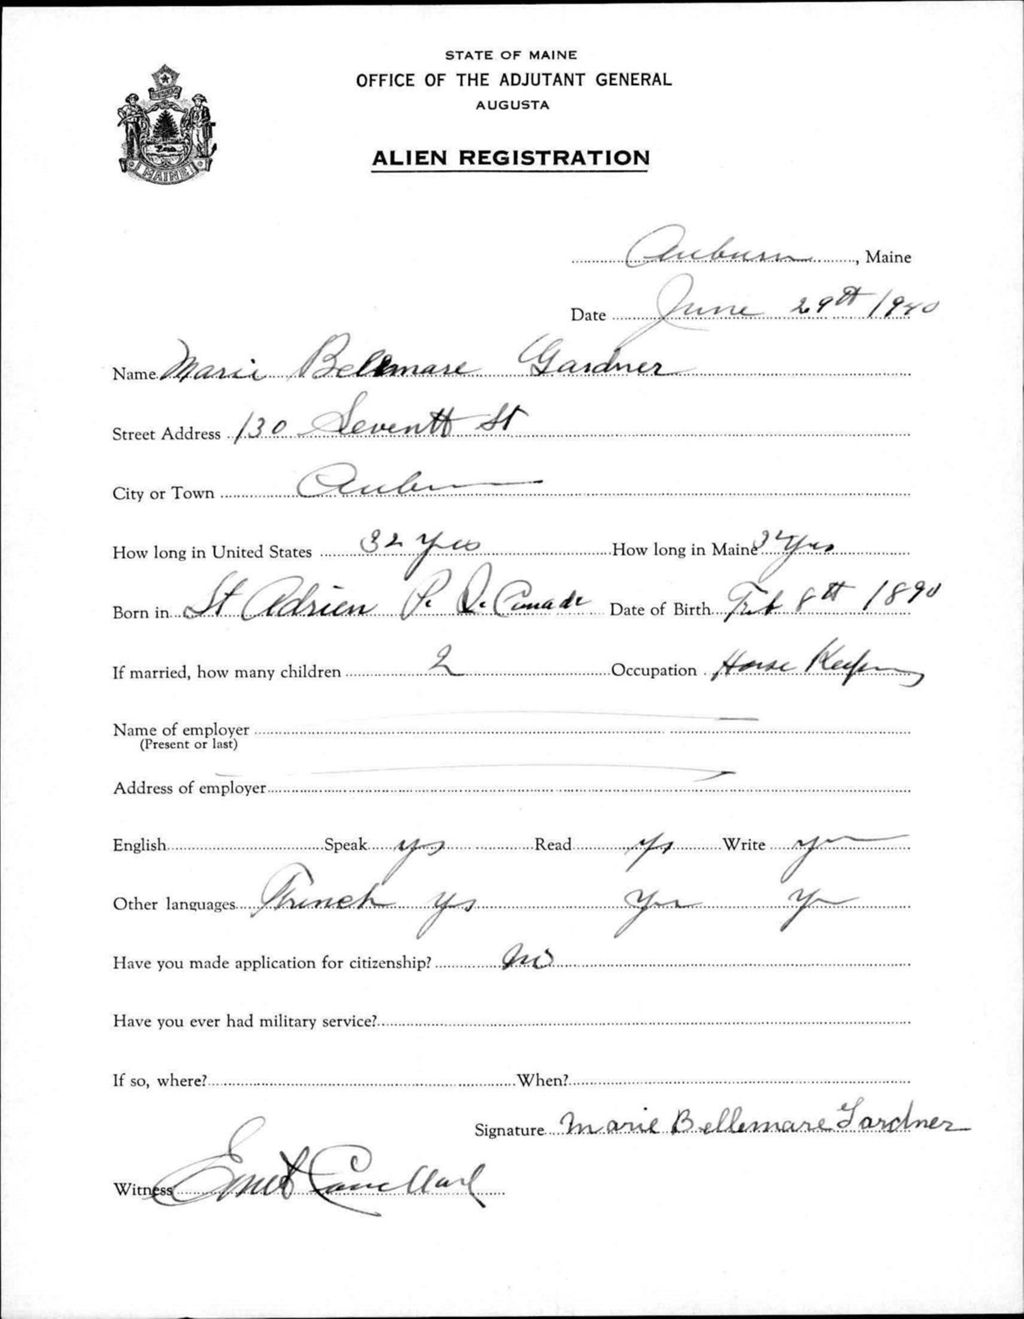 STATE OF MAINE
OFFICE OF THE ADJUTANT GENERAL
AUGUSTA
ALIEN REGISTRATION
MAINE
Auburn, Maine
Date June 29th 1940
Name Marie Bellemare Gardner
Street Address 130 Seventh St
City or Town Auburn
How long in United States 32 yrs How long in Maine 32 yrs
Born in St Adrien P. Q. Canada Date of Birth Feb 8th 1890
If married, how many children 2 Occupation House Keeping
Name of employer
(Present or last)
Address of employer
English Speak yes Read yes Write yes
Other languages French yes yes yes
Have you made application for citizenship? no
Have you ever had military service?
If so, where? When?
Signature Marie Bellemare Gardner
Witness